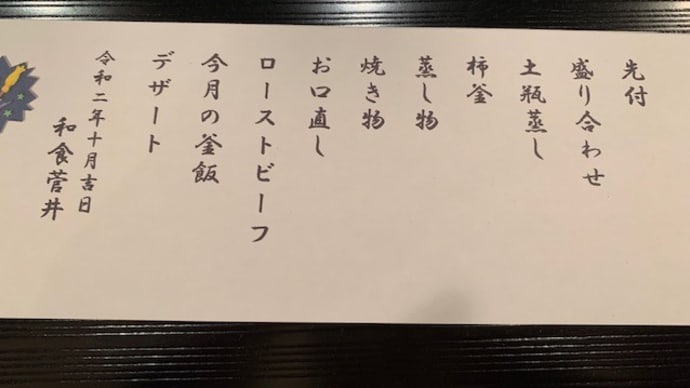 先付
盛り合わせ
土瓶蒸し
柿釜
蒸し物
焼き物
お口直し
ローストビーフ
今月の釜飯
デザート
令和二年十月吉日
和食菅井